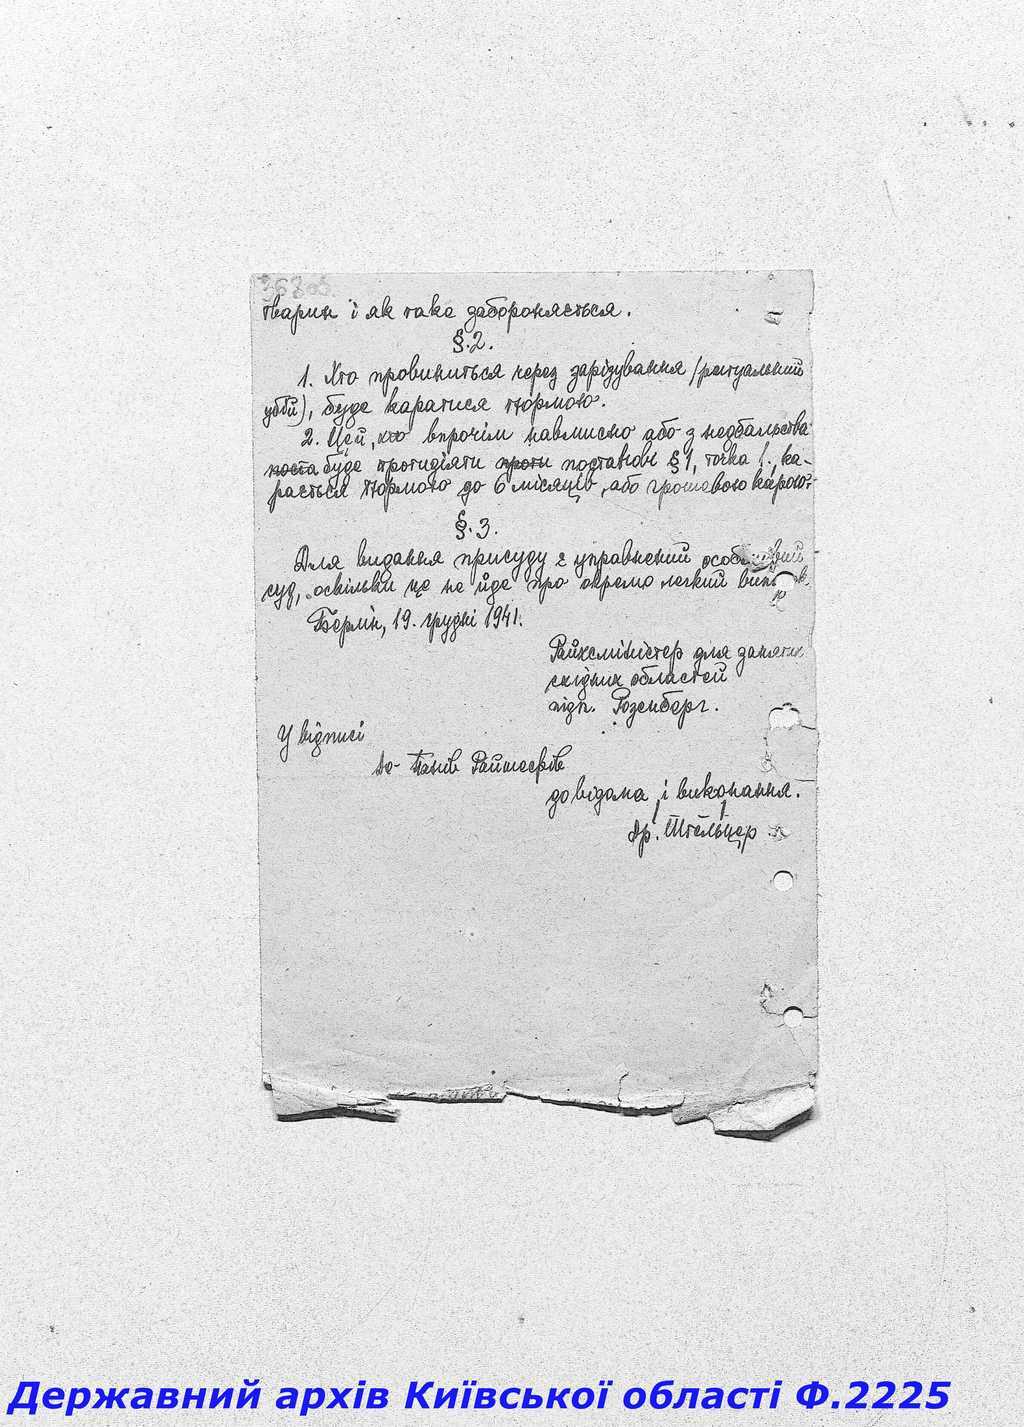 тварин і як така забороняється.
§.2.
1. Хто провиниться через зарізування /ритуальний
убій), буде каратися тюрмою.
2. Цей, хто впрочім навмисно або з недбальства
поста буде протидіяти проти постанові §1, точка 1., ка-
рається тюрмою до 6 місяців, або грошевою карою.
§.3.
Для видання присуду є управнений
суд, оскільки це не йде про окремо легкий
Берлін, 19. грудні 1941.
Райхсміністер для занятих
східних областей
підп. Розенберг.
У відписі
до Панів Райшефів
до відома і виконання.
др. Штельцер
Державний архів Київської області Ф.2225